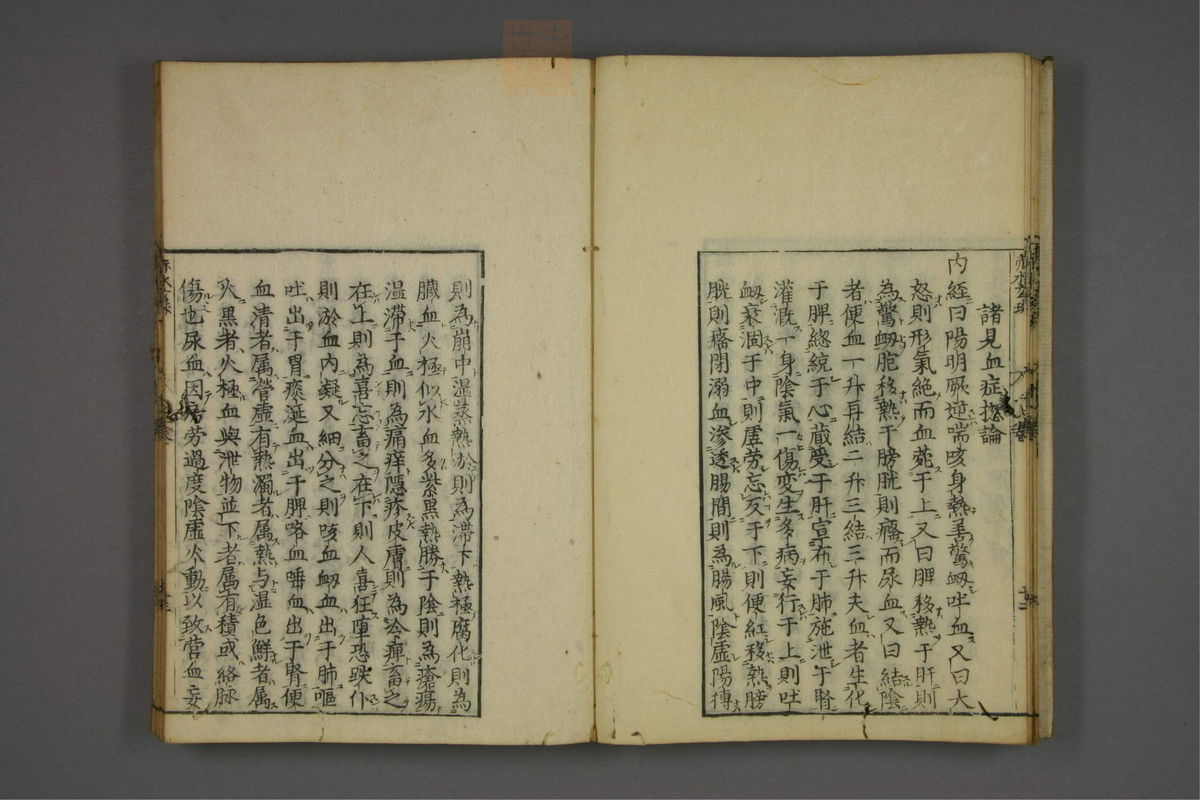 諸見血症揔論
内経曰陽明厥逆喘咳身熱善驚衂吐血又曰大
怒則形氣絶而血菀于上又曰脾移熱于肝則
為驚衂胞移熱于膀胱則癃而尿血又曰結陰
者便血一升再結二升三結三升夫血者生化
于脾総統于心蔵受于肝宣布于肺施泄于腎
灌漑一身陰氣一傷変生多病妄行于上則吐
衂衰涸于中則虚労忘反于下則便紅移熱膀
胱則癃閉溺血滲透腸間則為腸風陰虚陽摶
則為崩中温蒸熱淤則為滞下熱極腐化則為
臓血火極似水血多紫黒熱勝于陰則為瘡瘍
温滞于血則為痛痒隠疹皮膚則為冷痺畜之
在上則為喜忘畜之在下則人喜狂堕恐跌仆
則淤血内凝又細分之則咳血衂血出于肺嘔
吐出于胃痰涎血出于脾咯血唾血出于腎便
血清者属營虚有熱濁者属熱与湿色鮮者属
火黒者火極血與泄物並下者属有積或絡脉
傷也尿血因房労過度陰虚火動以致営血妄